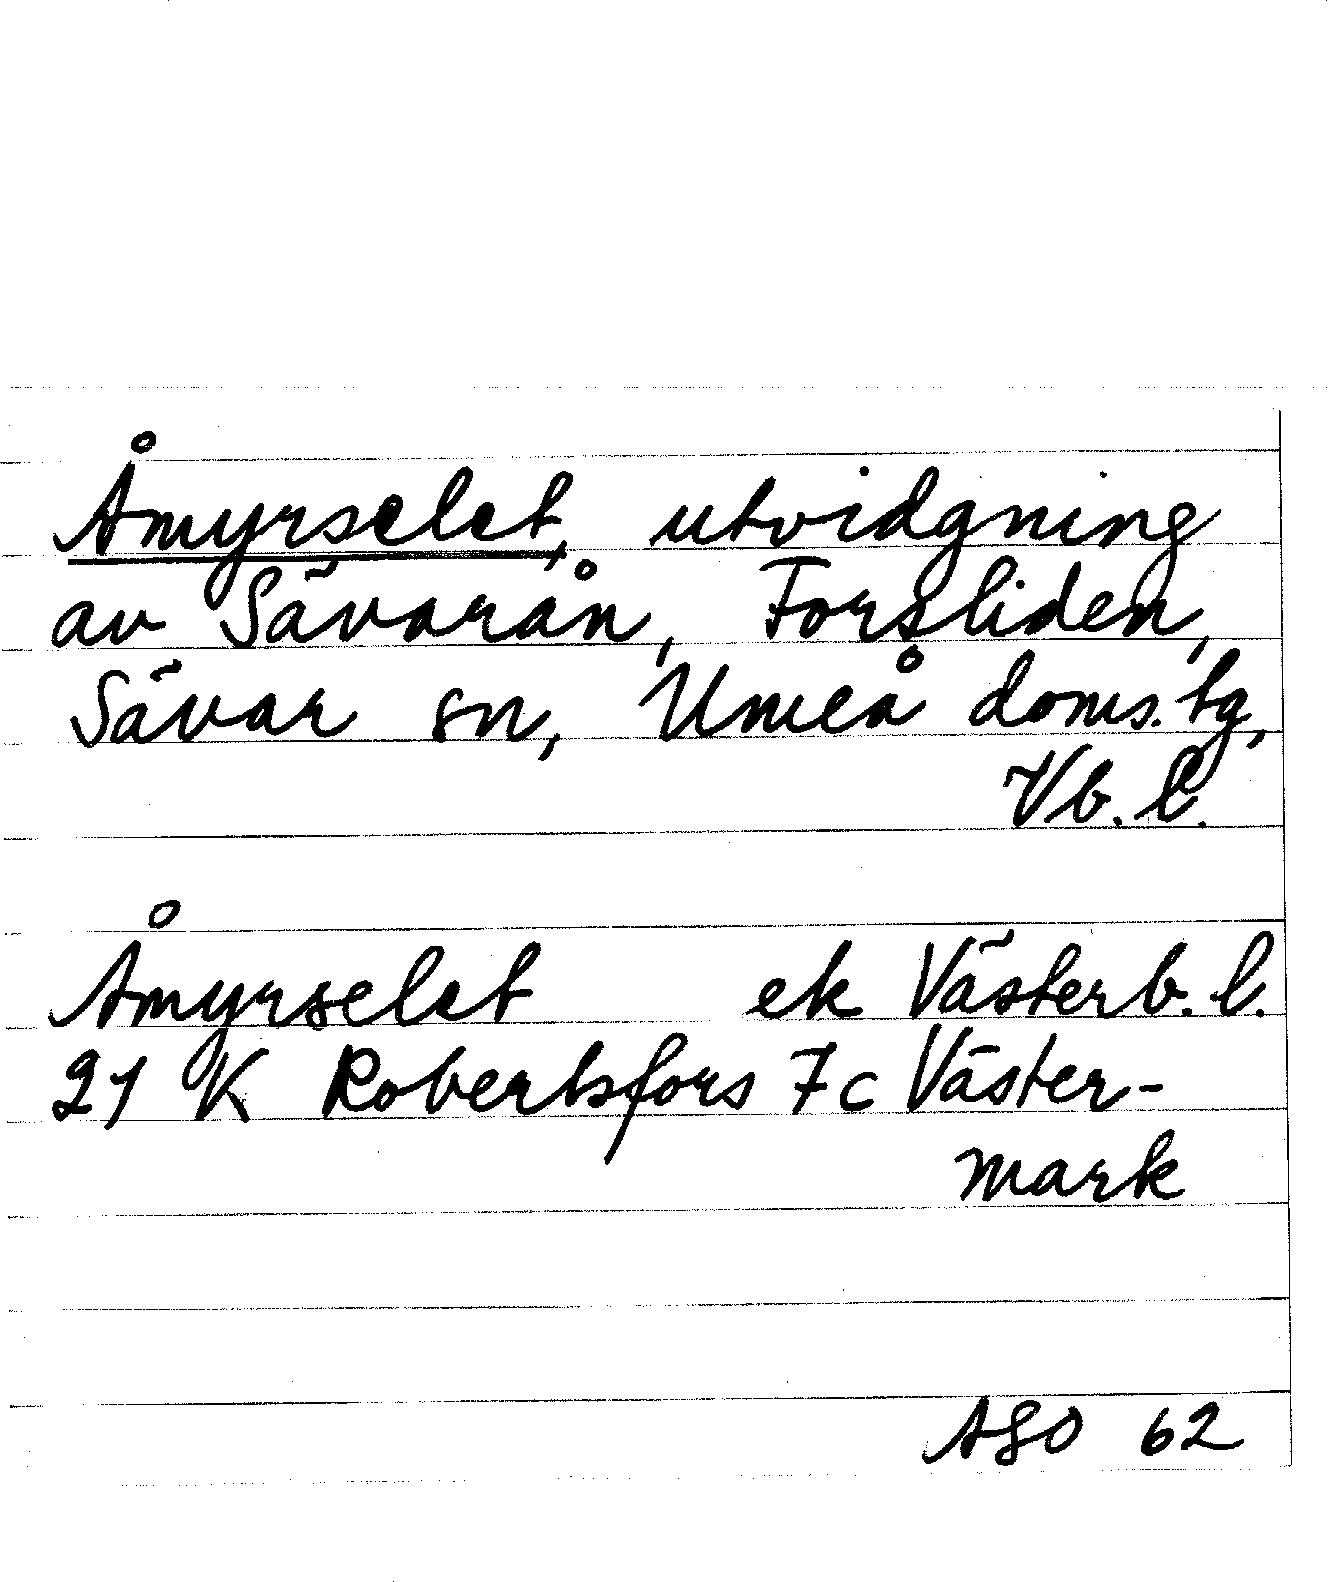 Åmyrselet, utvidgning
av Sävarån, Forsliden,
Sävar sn, Umeå doms. tg,
Vb. l.
Åmyrselet ek Västerb. l.
21 K Robertsfors 7c Väster-
mark
ASO 62